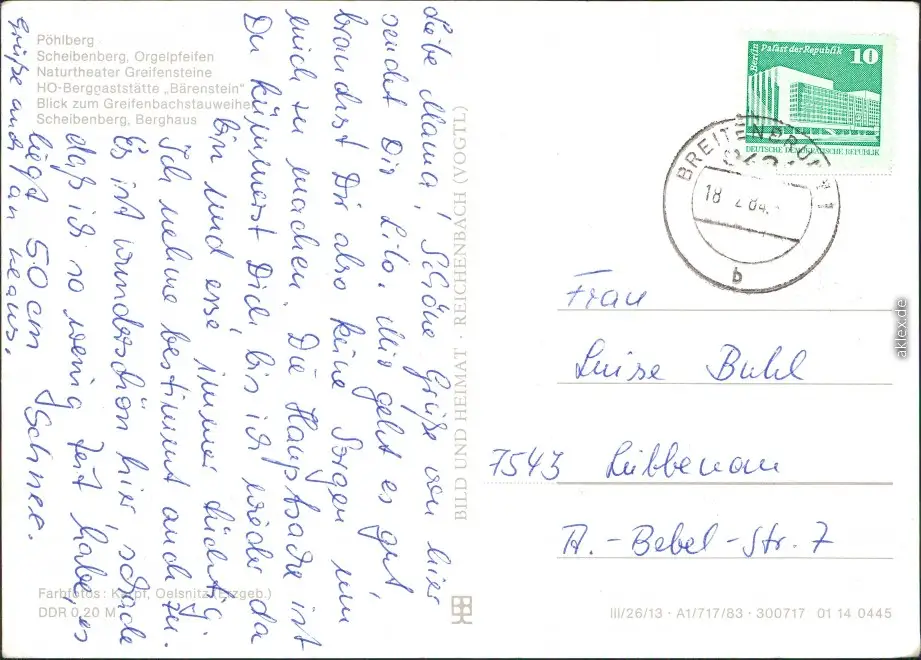 Pöhlberg
Scheibenberg, Orgelpfeifen
Naturtheater Greifensteine
HO-Berggaststätte „Bärenstein"
Blick zum Greifenbachstauweiher
Scheibenberg, Berghaus
Liebe Mama! Schöne Grüße von hier
sendet Dir Lilo. Mir geht es gut,
brauchst Dir also keine Sorgen um
mich zu machen. Die Hauptsache ist
Du kümmerst Dich bis ich wieder da
bin und esse immer tüchtig.
Ich nehme bestimmt auch zu.
Es ist wunderschön hier, schade
daß ich so wenig Zeit habe, es
liegt 50 cm Schnee.
Grüße auch an Klaus.
Farbfotos: Kampf, Oelsnitz (Erzgeb.)
DDR 0,20 M
BILD UND HEIMAT · REICHENBACH (VOGTL)
Berlin
Palast der Republik
10
DEUTSCHE DEMOKRATISCHE REPUBLIK
BREITENBRUNN 1
18 2 84
b
Frau
Luise Buhl
7543 Lübbenau
A.-Bebel-Str. 7
III/26/13 · A1/717/83 · 300717 01 14 0445
aklex.de